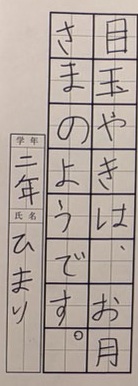 目玉やきは、お月
さまのようです。
学年
二年
氏名
ひまり